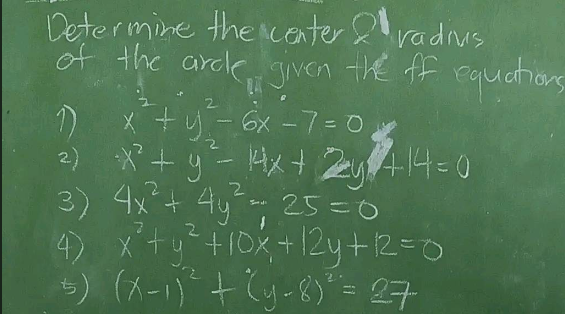 Determine the center & radius
of the circle, given the ff equations
1) x² + y² - 6x - 7 = 0
2) x² + y² - 14x + 2y + 14 = 0
3) 4x² + 4y² - 25 = 0
4) x² + y² + 10x + 12y + 12 = 0
5) (x-1)² + (y-8)² = 27